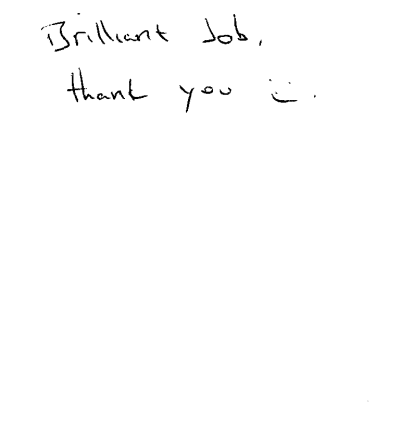 Brilliant Job,
thank you :).